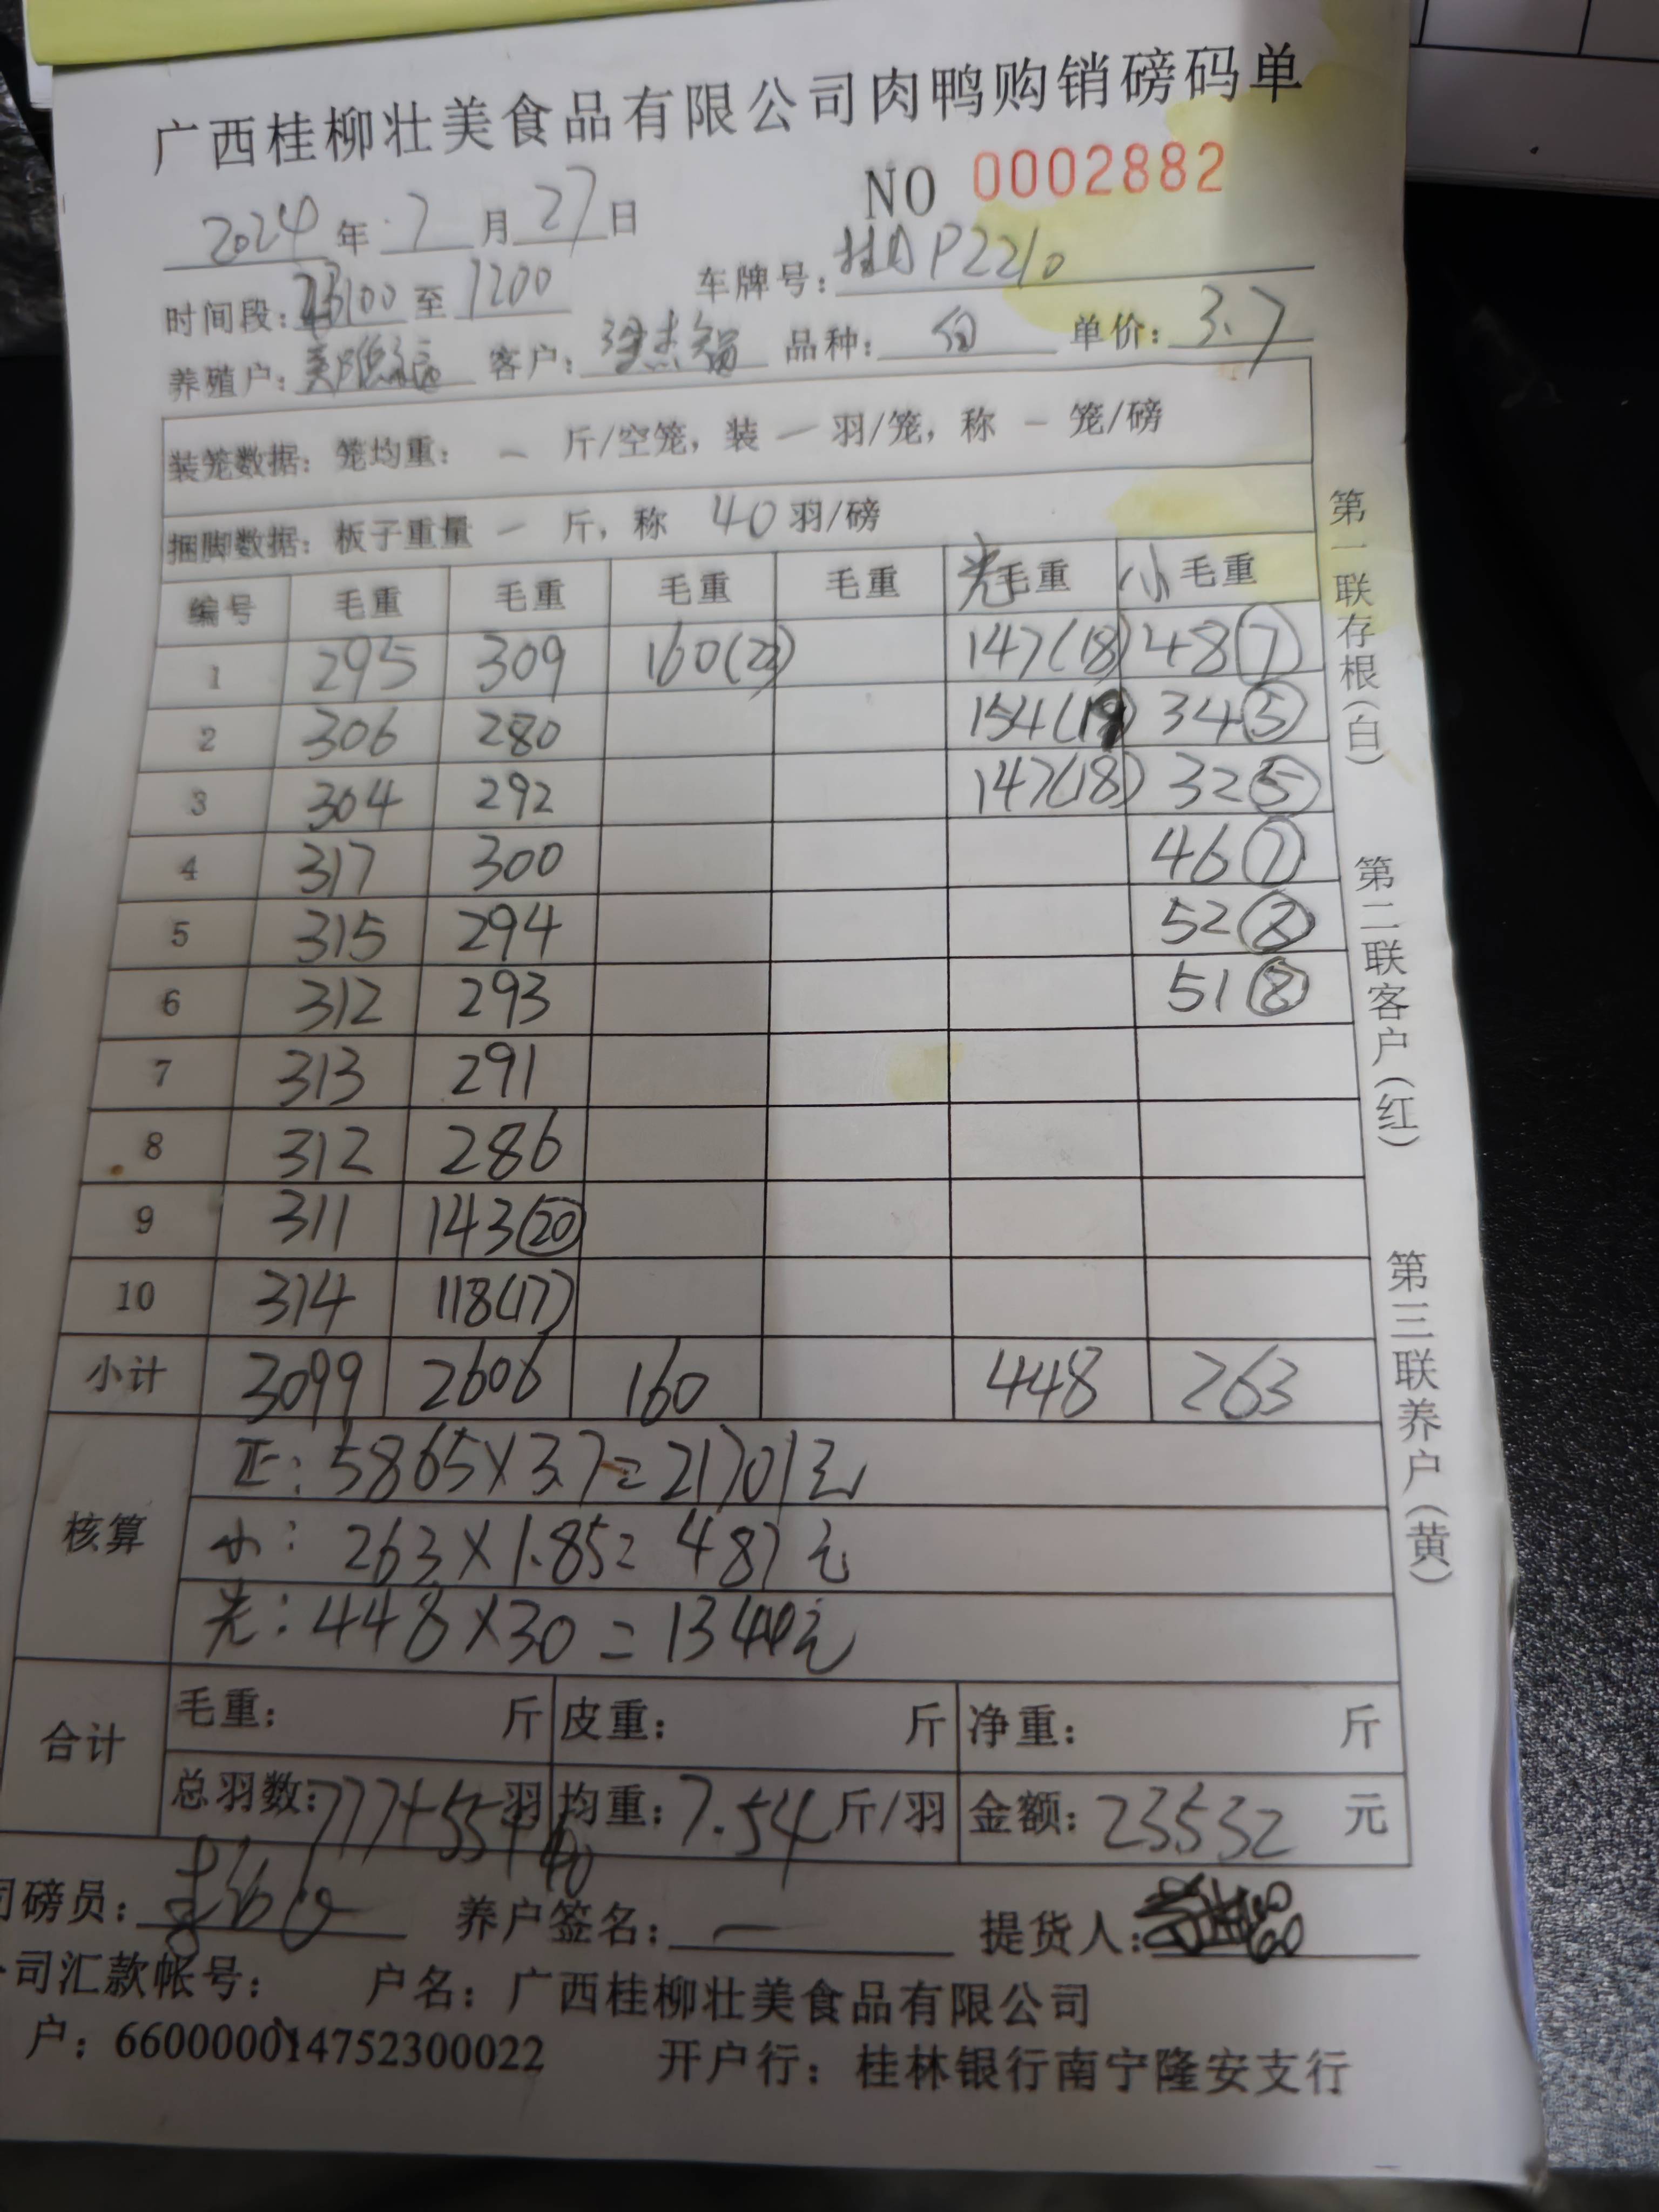 广西桂柳壮美食品有限公司肉鸭购销磅码单
NO 0002882
2024年7月27日
时间段: 至 1200 车牌号: P2210
养殖户: 客户: 品种: 白 单价: 3.7
装笼数据: 笼均重: — 斤/空笼, 装 — 羽/笼, 称 — 笼/磅
捆脚数据: 板子重量 — 斤, 称 40 羽/磅
编号 毛重 毛重 毛重 毛重 光毛重 小毛重
1 295 309 160(22) 147(18) 48(7)
2 306 280 154(19) 34(5)
3 304 292 147(18) 32(5)
4 317 300 46(7)
5 315 294 52(8)
6 312 293 51(8)
7 313 291
8 312 286
9 311 143(20)
10 314 118(17)
小计 3099 2606 160 448 263
核算
正: 5865×3.7=21701元
小: 263×1.85=487元
光: 448×30=1344元
合计
毛重: 斤 皮重: 斤 净重: 斤
总羽数: 777+55+40 羽 均重: 7.54 斤/羽 金额: 23532 元
司磅员: 养户签名: — 提货人:
公司汇款帐号: 户名: 广西桂柳壮美食品有限公司
户: 660000014752300022 开户行: 桂林银行南宁隆安支行
第一联存根(白)
第二联客户(红)
第三联养户(黄)